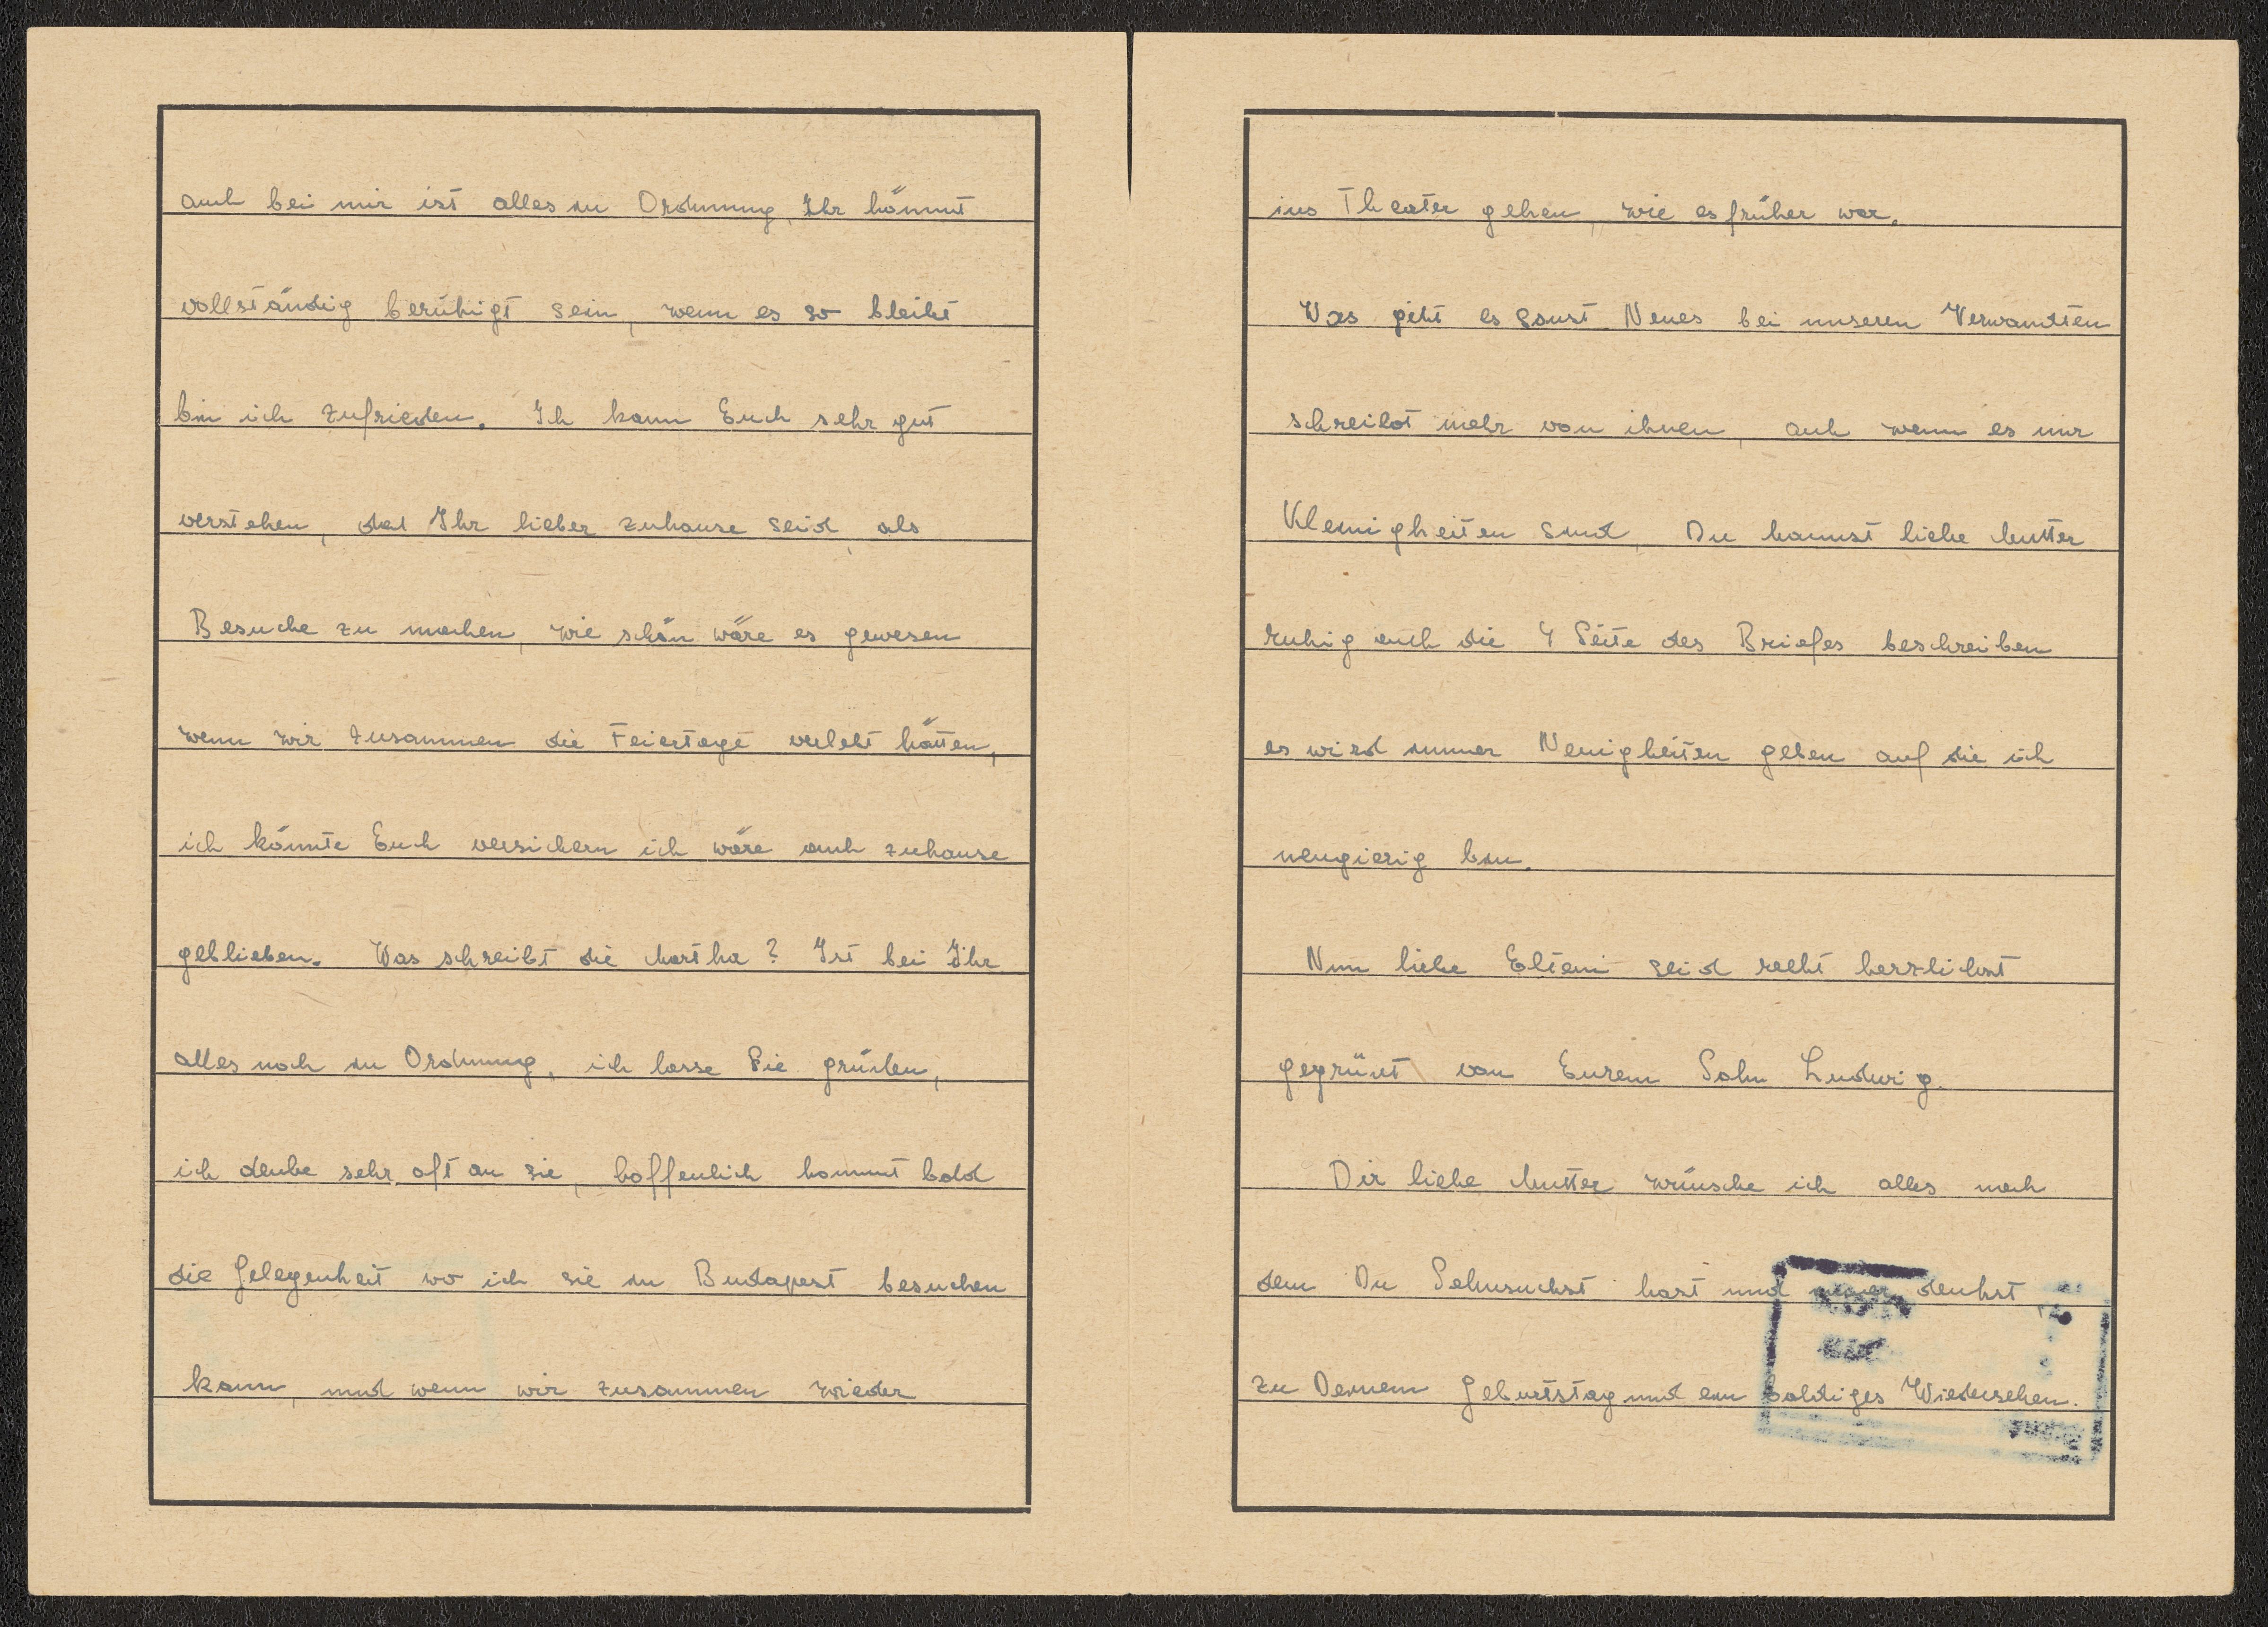 auch bei mir ist alles in Ordnung, Ihr könnt
vollständig berühigt sein, wenn es so bleibt
bin ich zufrieden. Ich kann Euch sehr gut
verstehen, daß Ihr lieber zuhause seid, als
Besuche zu machen, wie schön wäre es gewesen
wenn wir zusammen die Feiertage verlebt hätten,
ich könnte Euch versichern ich wäre auch zuhause
geblieben. Was schreibt die Martha? Ist bei Ihr
alles noch in Ordnung, ich lasse Sie grüßen,
ich denke sehr oft an sie, hoffenlich kommt bald
die Gelegenheit wo ich sie in Budapest besuchen
kann, und wenn wir zusammen wieder
ins Theater gehen, wie es früher war.
Was gibt es sonst Neues bei unseren Verwandten
schreibt mehr von ihnen, auch wenn es nur
Kleinigkeiten sind, Du kannst liebe Mutter
ruhig auch die 4 Seite des Briefes beschreiben
es wird immer Neuigkeiten geben auf die ich
neugierig bin.
Nun liebe Eltern seid recht herzlichst
gegrüßt von Eurem Sohn Ludwig.
Dir liebe Mutter wünsche ich alles nach
dem Du Sehnsuchst hast und denkst
zu Deinem Geburtstag und ein baldiges Wiedersehen.